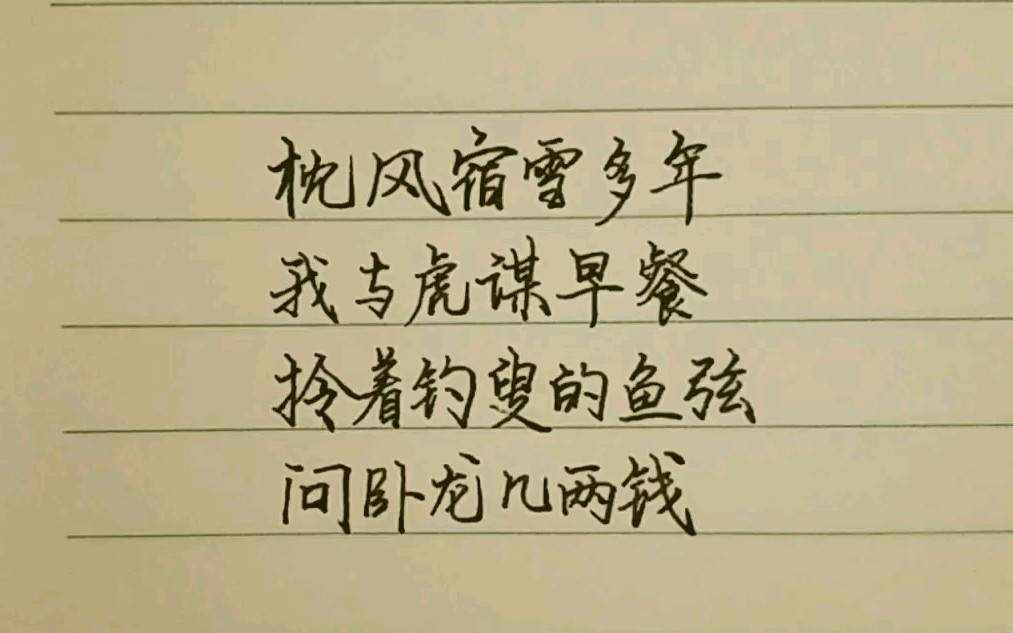 枕风宿雪多年
我与虎谋早餐
拎着钓叟的鱼弦
问卧龙几两钱